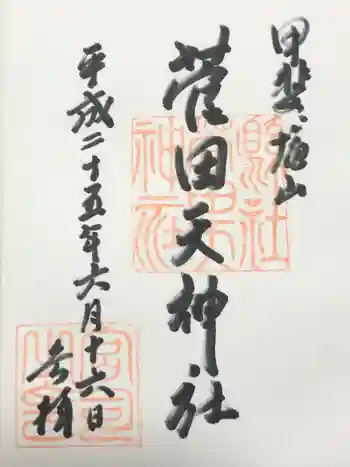 甲斐、塩山
菅田天神社
平成二十五年六月十六日
参拝